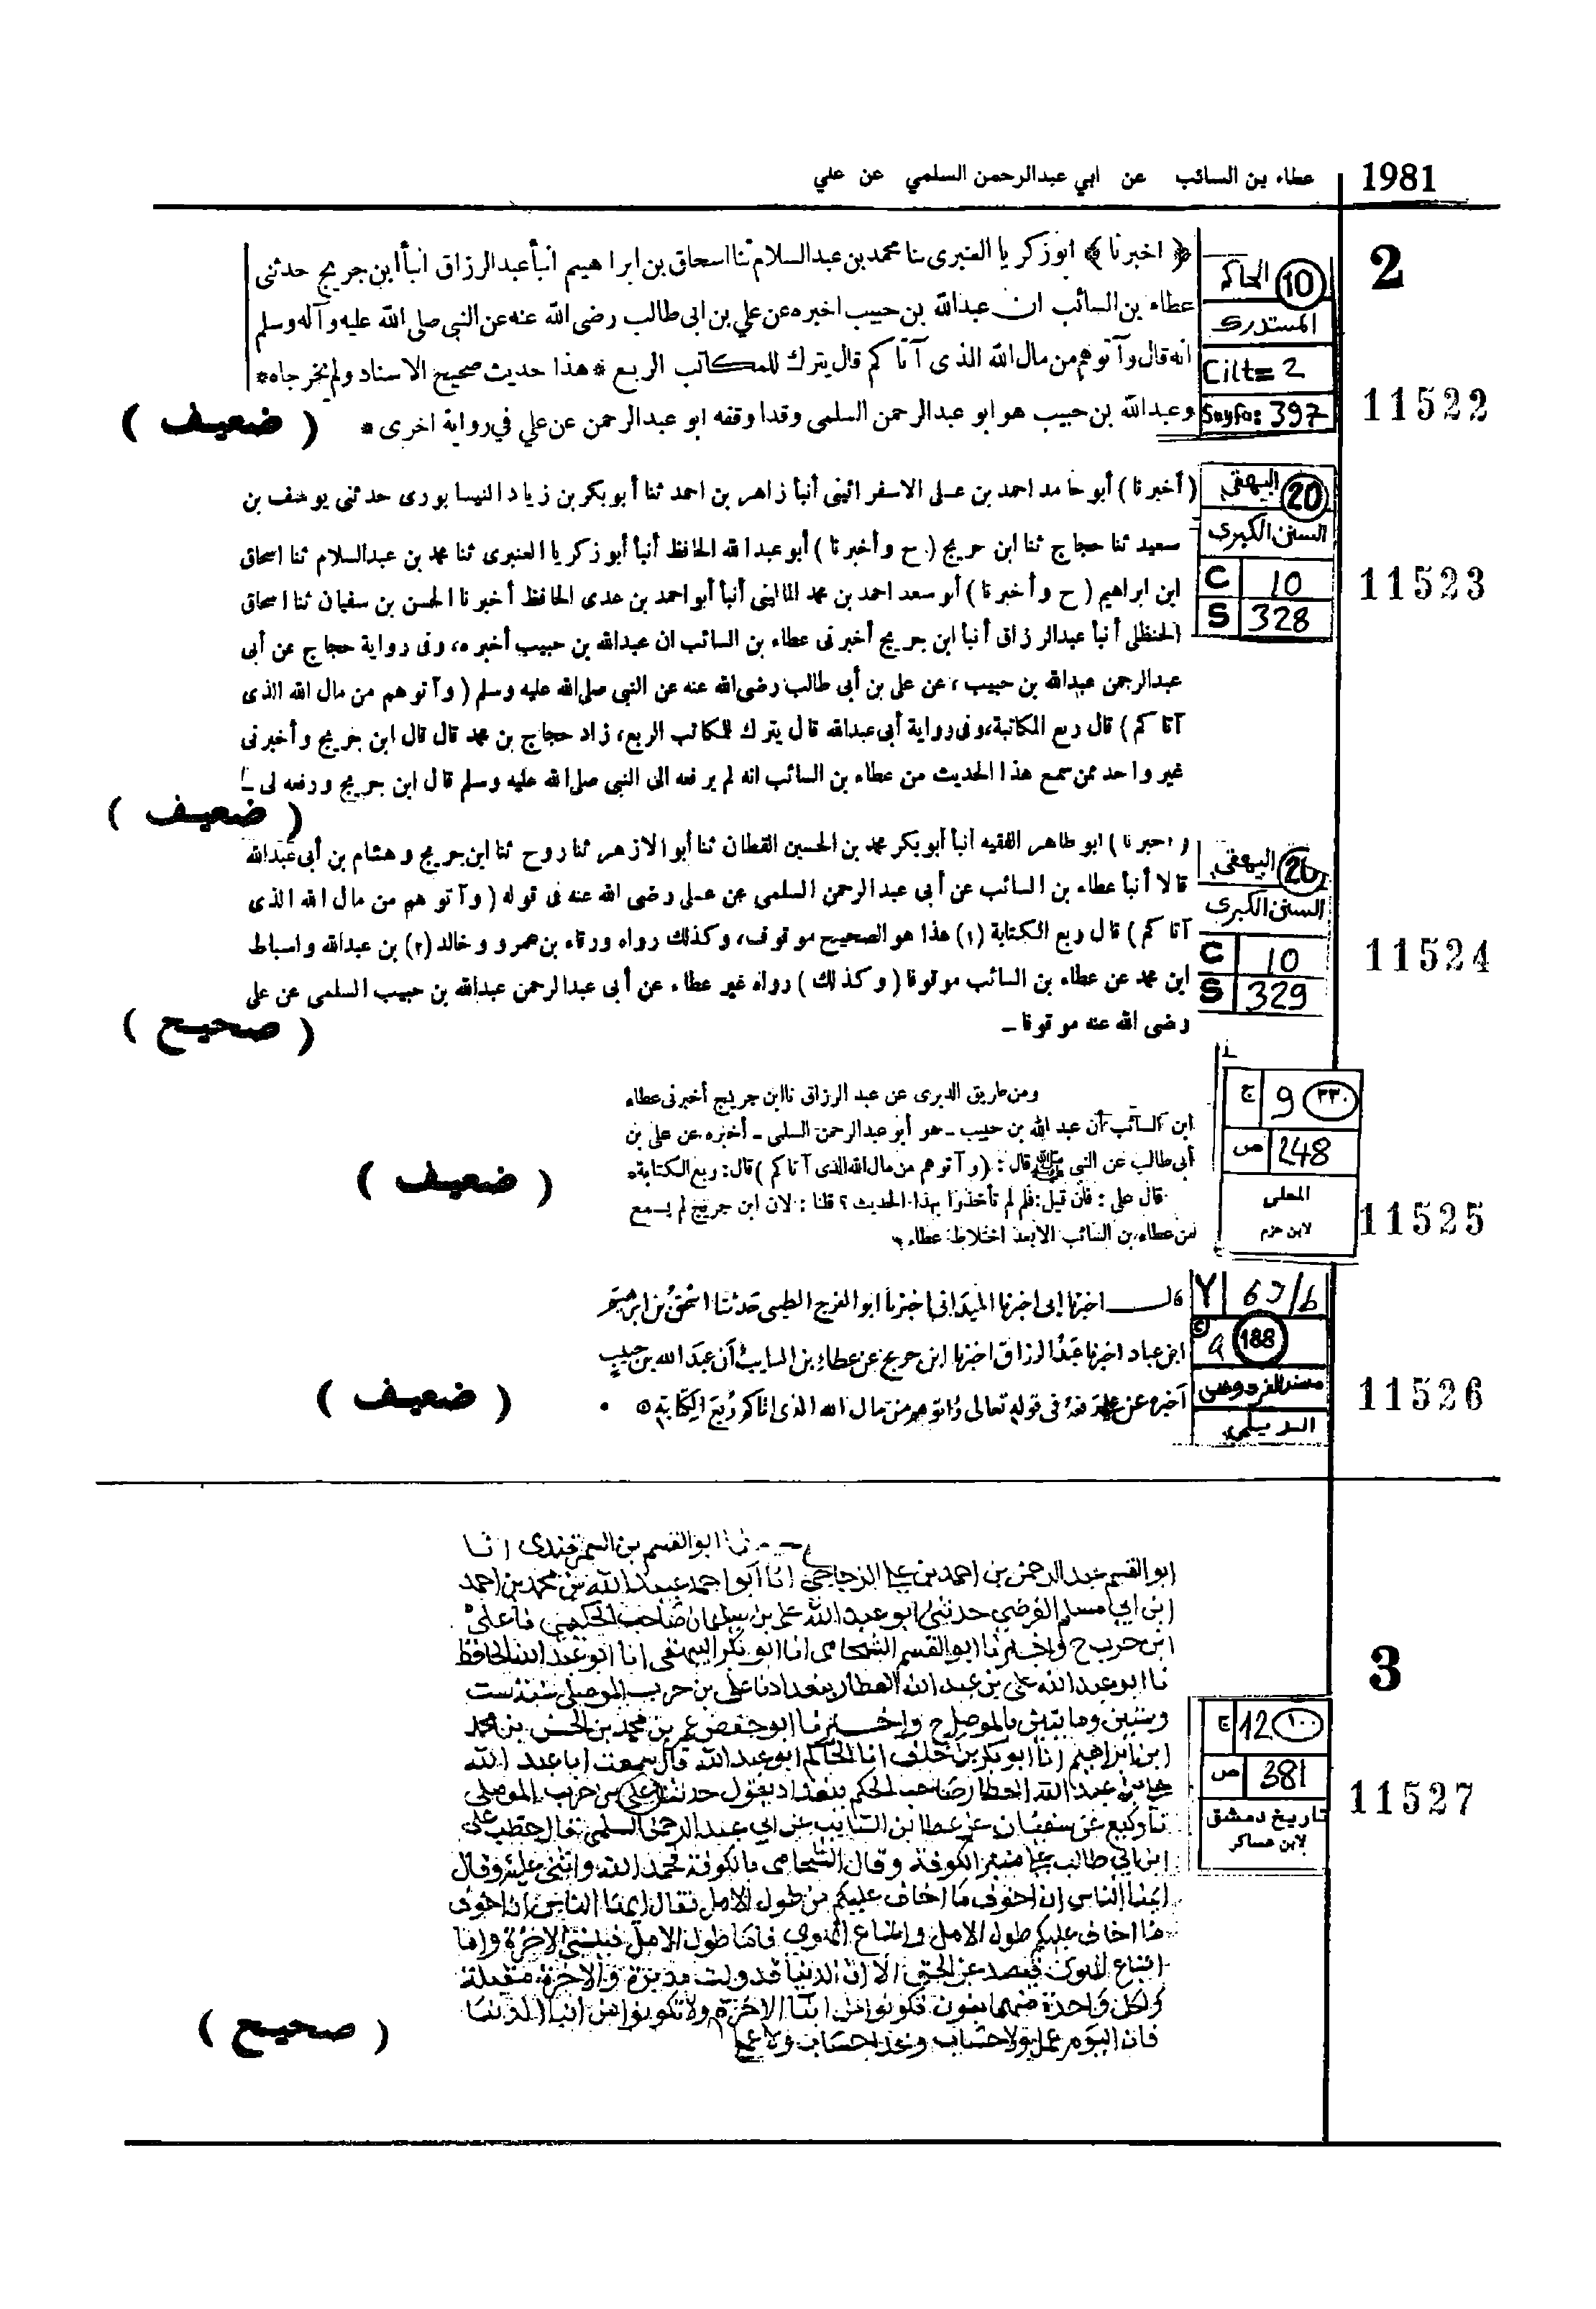 1981
عطاء بن السائب عن ابي عبدالرحمن السلمي عن علي
2
الحاكم 10
المستدرك
Cilt= 2
Sayfa: 397
11522
﴿ اخبرنا ﴾ ابو زكريا العنبرى ثنا محمد بن عبدالسلام ثنا اسحاق بن ابراهيم انبأ عبدالرزاق انبأ ابن جريج حدثنى
عطاء بن السائب ان عبدالله بن حبيب اخبره عن علي بن ابى طالب رضى الله عنه عن النبي صلى الله عليه وآله وسلم
انه قال وآتوهم من مال الله الذى آتاكم قال يترك للمكاتب الربع * هذا حديث صحيح الاسناد ولم يخرجاه *
وعبدالله بن حبيب هو ابو عبدالرحمن السلمى وقد اوقفه ابو عبدالرحمن عن علي في رواية اخرى *
( ضعيف )
البيهقي 20
السنن الكبرى
C 10
S 328
11523
( أخبرنا ) أبو حامد احمد بن على الاسفرائينى أنبأ زاهر بن احمد ثنا أبو بكر بن زياد النيسابورى حدثنى يوسف بن
سعيد ثنا حجاج ثنا ابن جريج ( ح وأخبرنا ) أبو عبدالله الحافظ أنبأ أبو زكريا العنبرى ثنا محمد بن عبدالسلام ثنا اسحاق
ابن ابراهيم ( ح وأخبرنا ) أبو سعد احمد بن محمد المالينى أنبأ أبو احمد بن عدى الحافظ أخبرنا الحسن بن سفيان ثنا اسحاق
الحنظلى أنبأ عبدالرزاق أنبأ ابن جريج أخبرنى عطاء بن السائب ان عبدالله بن حبيب أخبره، وفى رواية حجاج عن أبى
عبدالرحمن عبدالله بن حبيب، عن على بن أبى طالب رضى الله عنه عن النبى صلى الله عليه وسلم ( وآتوهم من مال الله الذى
آتاكم ) قال ربع المكاتبة، وفى رواية أبى عبدالله قال يترك للمكاتب الربع، زاد حجاج بن محمد قال قال ابن جريج وأخبرنى
غير واحد ممن سمع هذا الحديث من عطاء بن السائب انه لم يرفعه الى النبى صلى الله عليه وسلم قال ابن جريج ورفعه لى ـ
( ضعيف )
البيهقي 20
السنن الكبرى
C 10
S 329
11524
( واخبرنا ) ابو طاهر الفقيه أنبأ أبو بكر محمد بن الحسين القطان ثنا أبو الازهر ثنا روح ثنا ابن جريج وهشام بن أبى عبدالله
قالا أنبأ عطاء بن السائب عن أبى عبدالرحمن السلمى عن على رضى الله عنه فى قوله ( وآتوهم من مال الله الذى
آتاكم ) قال ربع الكتابة (١) هذا هو الصحيح موقوف، وكذلك رواه ورقاء بن عمرو وخالد (٢) بن عبدالله واسباط
ابن محمد عن عطاء بن السائب موقوفا ( وكذلك ) رواه غير عطاء عن أبى عبدالرحمن عبدالله بن حبيب السلمى عن على
رضى الله عنه موقوفا ـ
( صحيح )
ج 9 ٣٣٠
ص 248
المحلى
لابن حزم
11525
ومن طريق الدبرى عن عبد الرزاق نا ابن جريج أخبرنى عطاء
ابن السائب أن عبد الله بن حبيب ـ هو أبو عبدالرحمن السلمى ـ أخبره عن على بن
أبى طالب عن النبى ﷺ قال : ( وآتوهم من مال الله الذى آتاكم ) قال : ربع الكتابة *
قال على : فان قيل : فلم لم تأخذوا بهذا الحديث ؟ قلنا : لان ابن جريج لم يسمع
من عطاء بن السائب الا بعد اختلاط عطاء *
( ضعيف )
Y 67/b
188
مسند الفردوس
الديلمي
11526
قال اخبرنا ابى اخبرنا الميدانى اخبرنا ابو الفرج الطيبى حدثنا اسحق بن ابرهيم
ابن عباد اخبرنا عبد الرزاق اخبرنا ابن جريج عن عطاء بن السايب أن عبد الله بن حبيب
أخبره عن على رفعه فى قوله تعالى وآتوهم من مال الله الذى اتاكم ربع الكتابة
( ضعيف )
3
ج 12 ١٠٠
ص 381
تاريخ دمشق
لابن عساكر
11527
ابو القسم بن السمرقندى انا
ابو القسم عبد الرحمن بن احمد بن على الزجاجي انا ابو احمد عبيد الله بن محمد بن احمد
ابن ابي مسلم الفرضي حدثنى ابو عبد الله على بن سليمان صاحب الحكيمي نا على
ابن حرب ح واخبرنا ابو القسم الشحامى انا ابو بكر البيهقى انا ابو عبد الله الحافظ
نا ابو عبد الله على بن عبد الله العطار ببغداد نا على بن حرب الموصلى سنة ست
وستين ومايتين بالموصل ح واخبرنا ابو جعفر عمر بن محمد بن الحسن بن محمد
ابن ابراهيم انا ابو بكر بن خلف انا الحاكم ابو عبد الله قال سمعت ابا عبد الله
على بن عبد الله العطار صاحب الحكم ببغداد يقول حدثنا على بن حرب الموصلى
نا وكيع عن سفيان عن عطا بن السايب عن ابي عبد الرحمن السلمى قال خطب على
ابن ابي طالب على منبر الكوفة وقال الشحامى بالكوفة فحمد الله واثنى عليه وقال
ايها الناس ان اخوف ما اخاف عليكم من طول الامل فقال ايها الناس ان اخوف
ما اخاف عليكم طول الامل واتباع الهوى فاما طول الامل فينسى الاخرة واما
اتباع الهوى فيصد عن الحق الا ان الدنيا قد ولت مدبرة والاخرة مقبلة
ولكل واحدة منهما بنون فكونوا من ابنا الاخرة ولا تكونوا من ابنا الدنيا
فان اليوم عمل ولا حساب وغدا حساب ولا عمل
( صحيح )